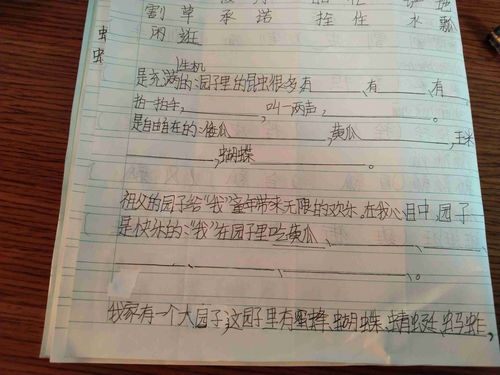 割草 承诺 拴住 水瓢
闲逛
虫
虫
生机
是充满的:园子里的昆虫很多有____、有____、____
拍一拍手,____,叫一两声,____。
是自由自在的:倭瓜____,黄瓜____,玉米
____,蝴蝶____。
祖父的园子给“我”童年带来无限的欢乐。在我心目中,园子
是快乐的:“我”在园子里吃黄瓜、____、____、
____、____、____。
我家有一个大园子,这园子里有蜜蜂、蝴蝶、蜻蜓、蚂蚱,